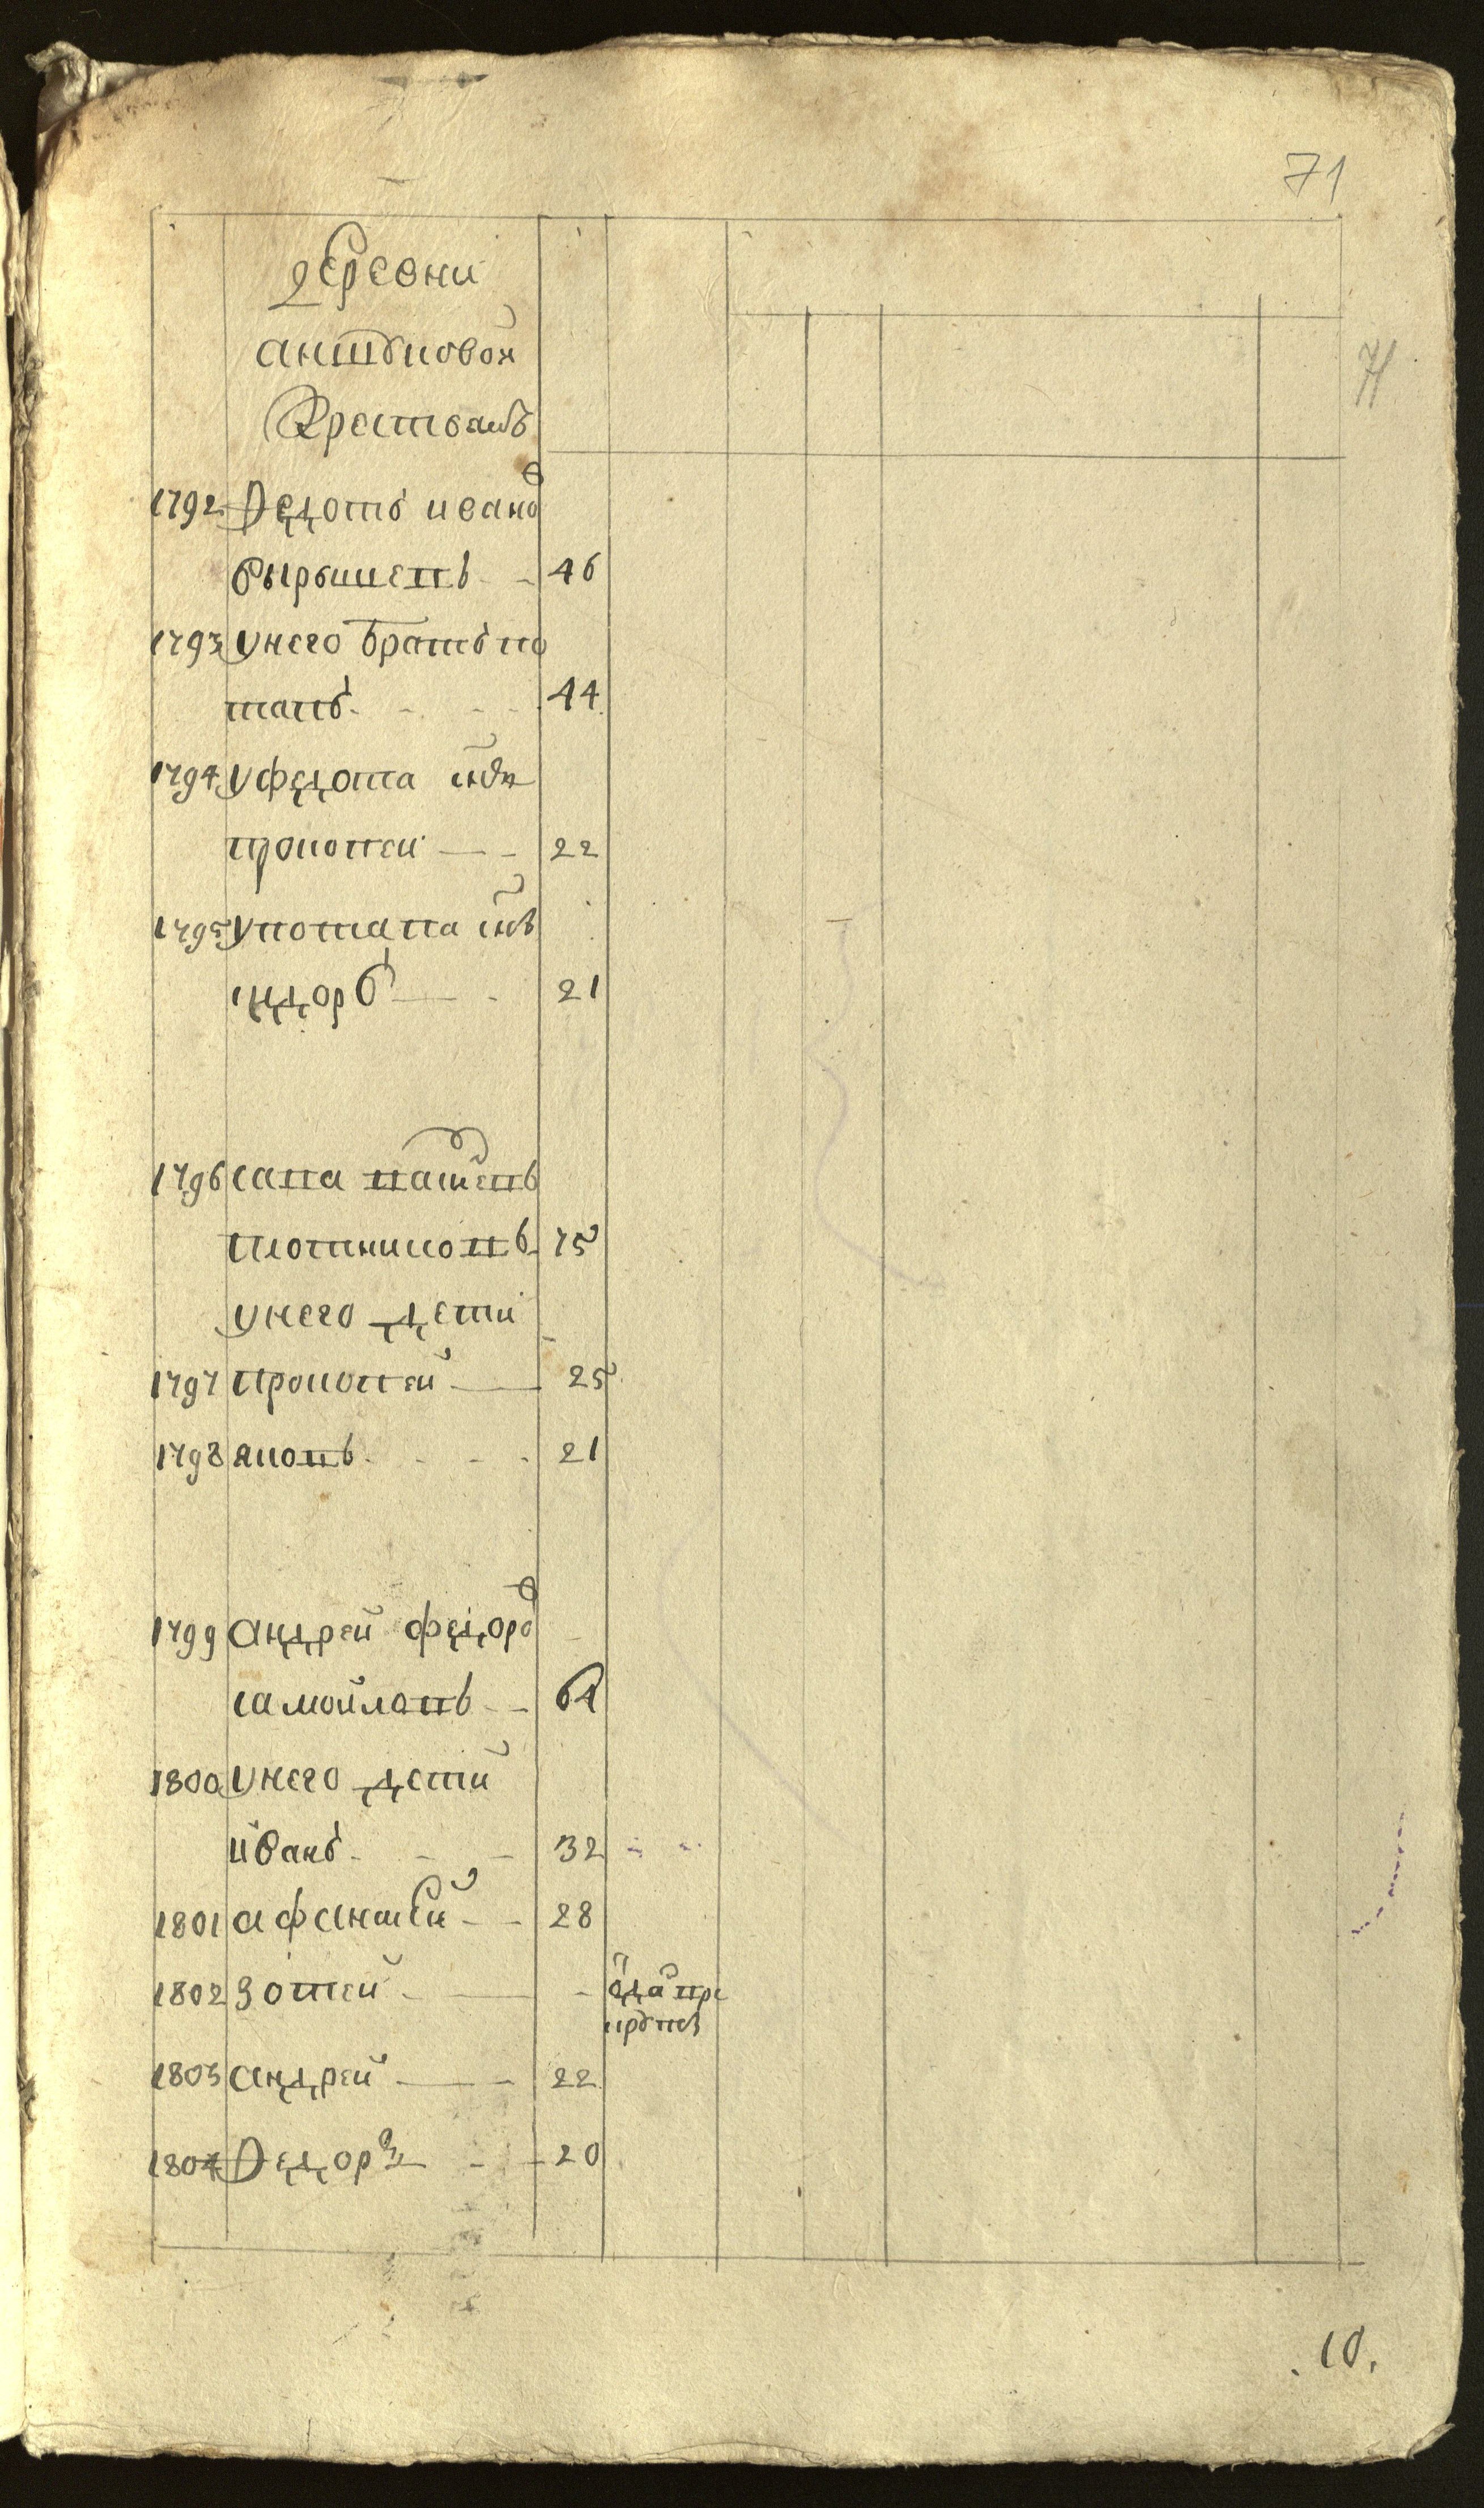 71
деревни
антꙋповой
крестьянъ
71
1792 Федотъ ивановъ
вырышевъ 46
1793 у него братъ по
тапъ 44
1794 у федота сынъ
прокопей 22
1795 у потапа сынъ
сидоръ 21
1796 сава
плотниковъ 75
у него дети
1797 прокопей 25
1798 яковъ 21
1799 андрей федоровъ
самойловъ 64
1800 у него дети
иванъ 32
1801 афанасей 28
1802 зотей
1803 андрей 22
1804 Федоръ 20
10.